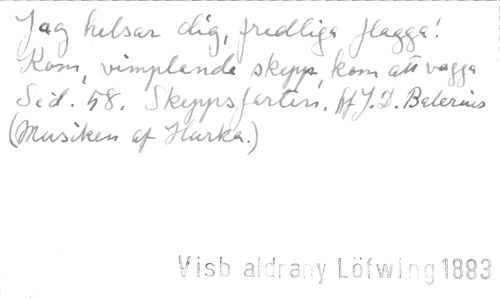 Jag helsar dig, fredliga flagga!
Kom, vimplande skepp, kom att vagga
Sid. 58. Skeppsfarten. Af J. D. Valerius
(Musiken af Hurka.)
Visb aldrany Löfwing 1883